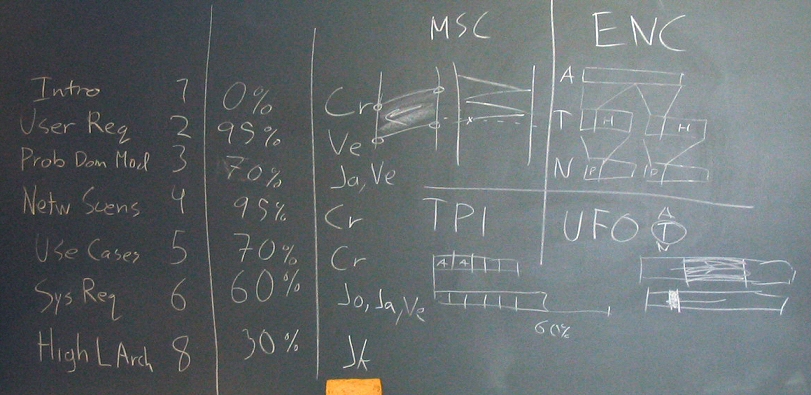 Intro 1 0% Cr
User Req 2 95% Ve
Prob Dom Mod 3 70% Ja, Ve
Netw Scens 4 95% Cr
Use Cases 5 70% Cr
Sys Req 6 60% Jo, Ja, Ve
High L Arch 8 30% JA
MSC
ENC
A
T H H
N P P
TPI
A A
60%
UFO
A
T
N